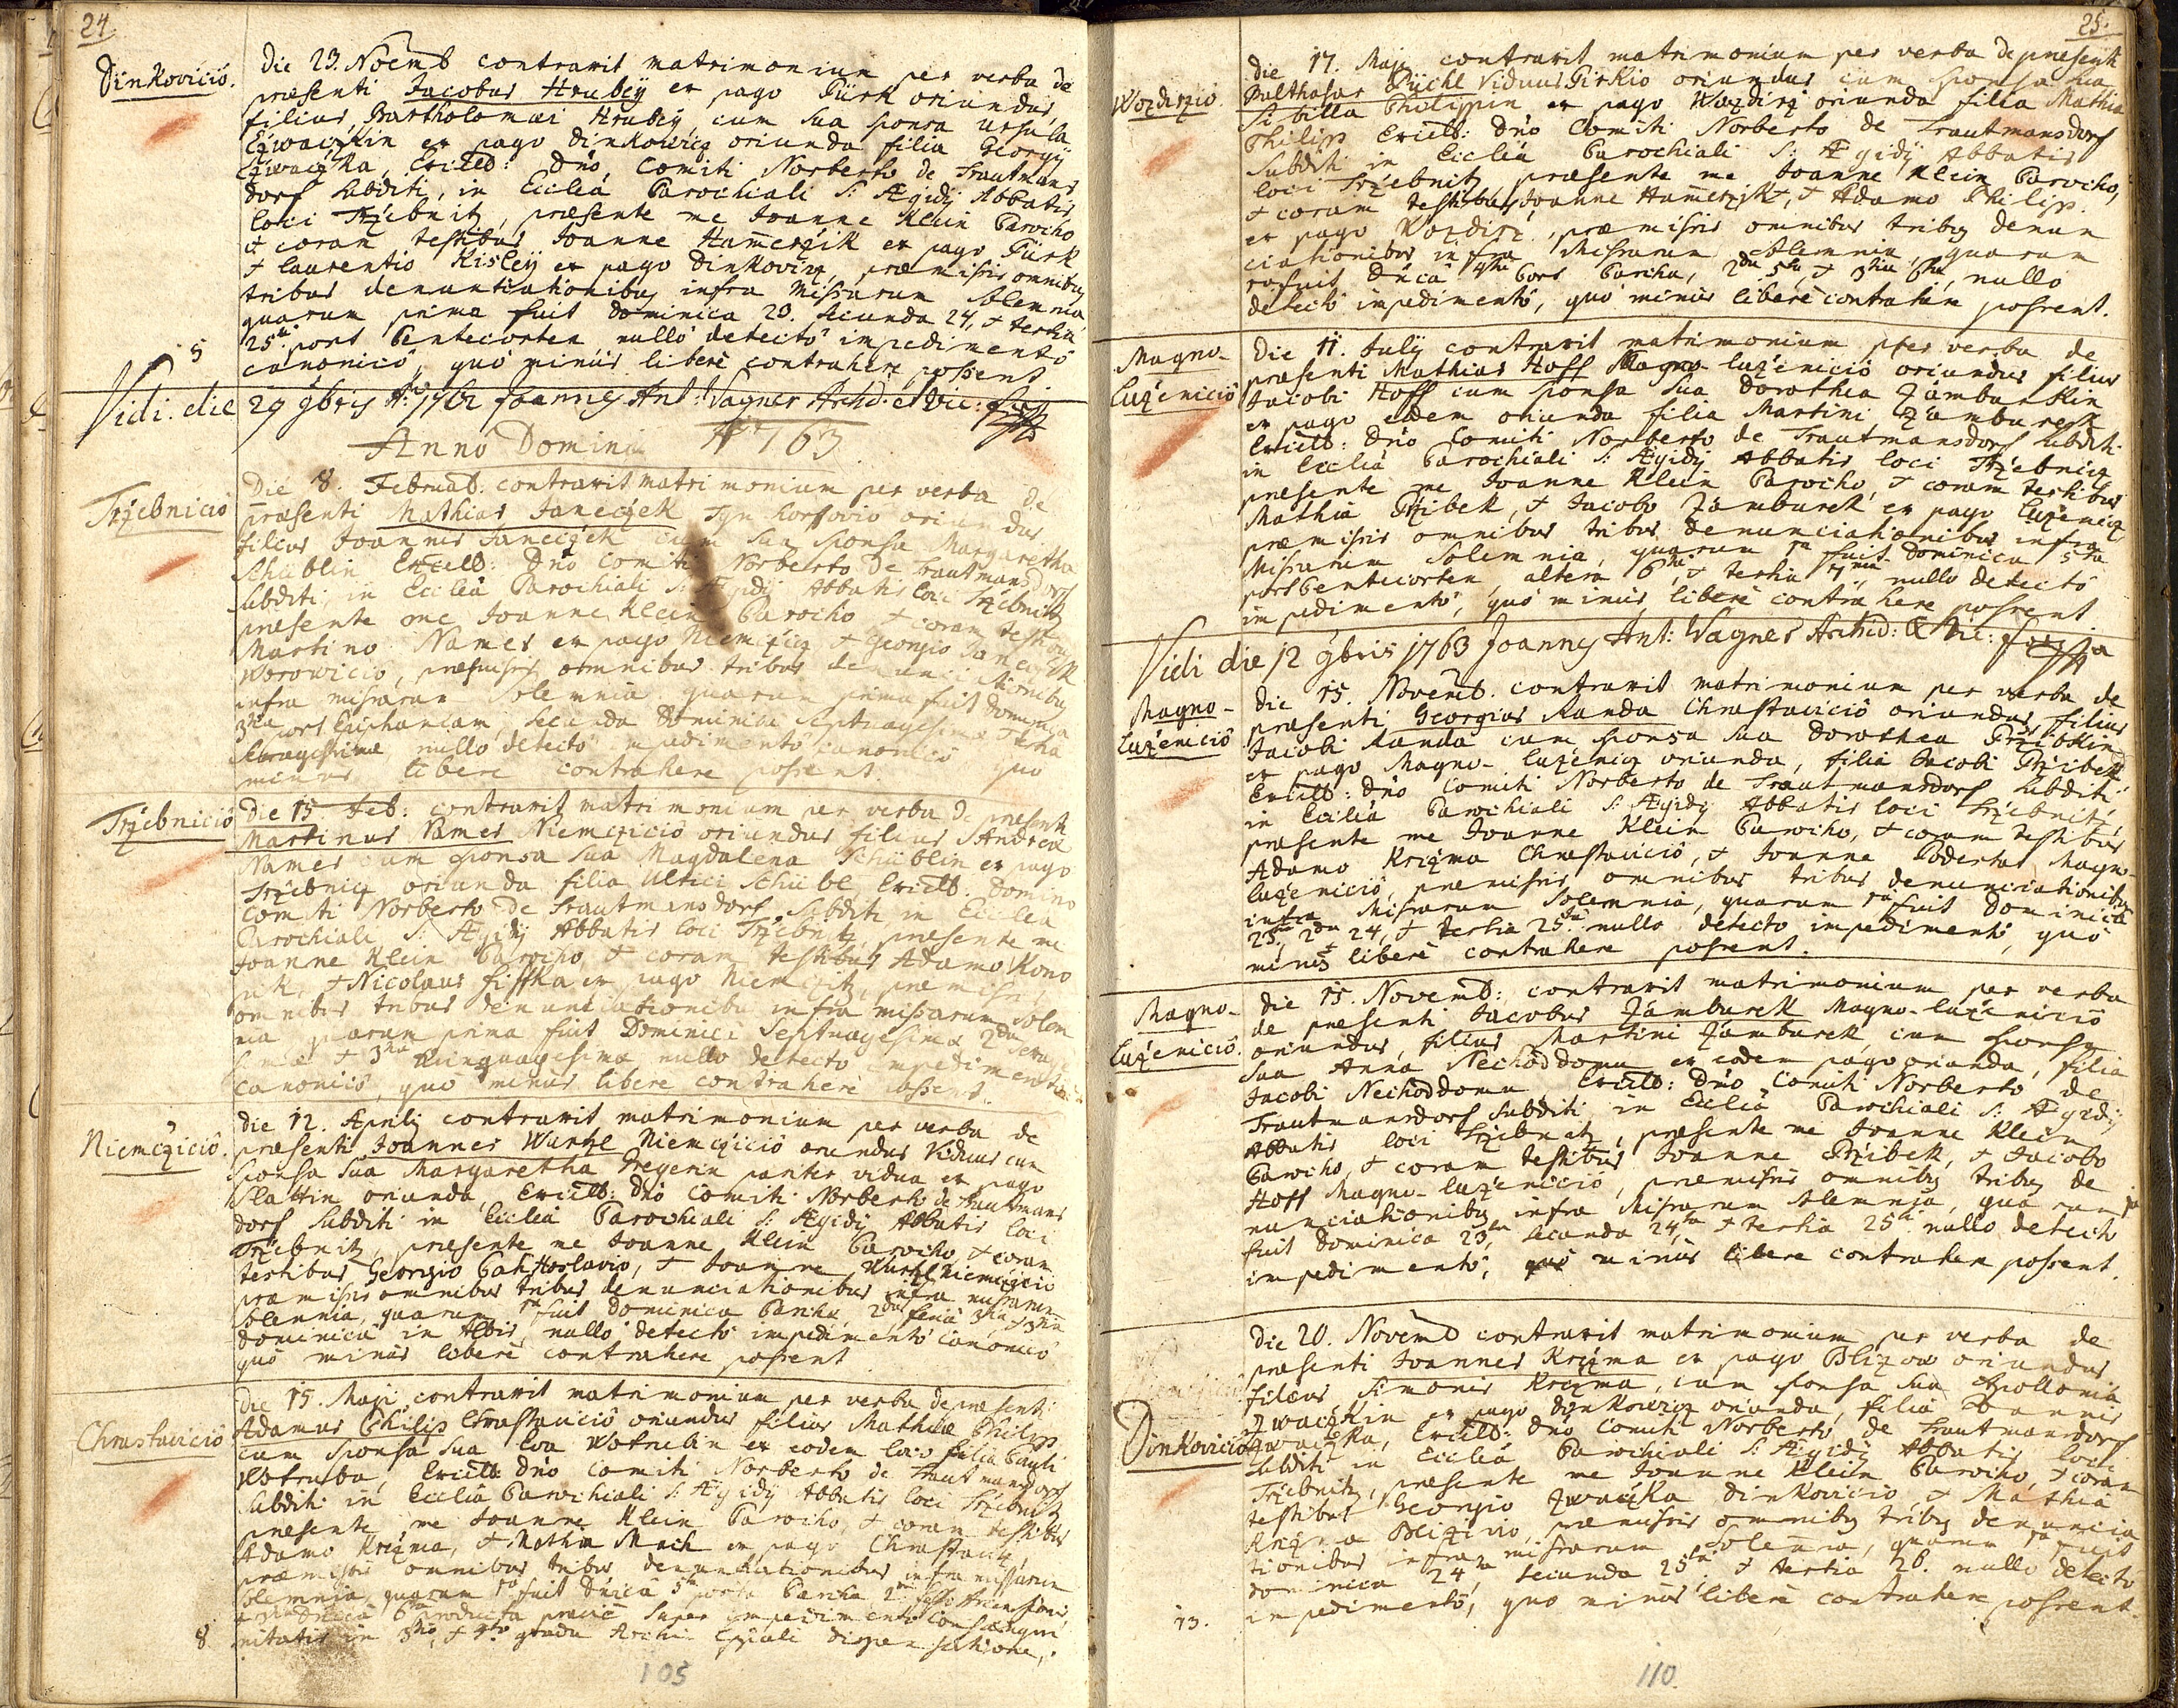 24
Dinkovicio.
Die 23. Noemb contraxit matrimonium per verba de
præsenti Jacobus Hrubÿ ex pago Pürk oriundus,
filius Bartholomæi Hrubÿ, cum sua sponsa Ursula
Czwaczkin ex pago Dinkowicz oriunda filia Georgÿ
Czwaczka, Excelld: Dnō Comiti Norberto de Trautmans
dorf subditi, in Ecclîa Parochiali S: Ægidÿ Abbatis
loci Trzebnitz, præsente me Joanne Klein Parocho
& coram testibus Joanne Ham̄erzik ex pago Pürk
& Laurentio Kisleÿ ex pago Dinkovicz, præmissis omnibus
tribus denuntiationibus infra Missarum solemnia,
quarum prima fuit Dominica 23. secunda 24, & tertia
25ta post Pentecosten nullo detecto impedimento
canonico, quo minus libere contrahere possent.
5
Vidi die 29 9bris Ao: 1762 Joannes Ant: Wagner Archid: et Vic:
Anno Domini 1763
Trzebnicio
Die 8. Februar: contraxit matrimonium per verba de
præsenti Mathias Janeczek Tyn Horssovio oriundus
filius Joannis Janeczek cum sua sponsa Margaretha
Schüblin Excelld: Dnō Comiti Norberto de Trautmansdorf
subditi, in Ecclîa Parochiali S: Ægidÿ Abbatis loci Trzebnitz
præsente me Joanne Klein Parocho & coram testibus
Martino Names ex pago Niemczicz & Georgio Janeczek
Worowicio, præmissis omnibus tribus denunciationibus
infra missarum solemnia quarum prima fuit Dominica
3tia post Epiphaniam, secunda Dominica Septuagesima & tertia
Sexagesimæ nullo detecto impedimento canonico quo
minus libere contrahere possent.
Trzebnicio
Die 15. Feb: contraxit matrimonium per verba de præsenti
Martinus Names Niemczicio oriundus filius Andreæ
Names cum sponsa sua Magdalena Schüblin ex pago
Trzebnicz oriunda filia Ulrici Schübl Excelld. Domino
Comiti Norberto de Trautmansdorf subditi in Ecclîa
Parochiali S: Ægidÿ Abbatis loci Trzebnitz præsente me
Joanne Klein Parocho, & coram testibus Adamo Kono
pik, & Nicolaus fisska ex pago Niemczitz, præmissis
omnibus tribus denunciationibus infra missarum solem
nia quarum prima fuit Dominica Septuagesima 2da Sexage
sima & 3tia Quinquagesima nullo detecto impedimento
canonico, quo minus libere contrahere possent.
Niemczicio.
Die 12. Aprilÿ contraxit matrimonium per verba de
præsenti Joannes Wurtzl Niemczicio oriundus Viduus cum
sponsa sua Margaretha Gregerin pariter vidua ex pago
Slattin oriunda, Excelld: Dnō Comiti Norberto de Trautmans
dorf subditi in Ecclîa Parochiali S: Ægidÿ Abbatis loci
Trzebnitz, præsente me Joanne Klein Parocho & coram
testibus Georgio Hostlavio, & Joanne Wurtzl Niemczicio
præmissis omnibus tribus denunciationibus infra missarum
solemnia, quarum 1a fuit Dominica Pascha, 2da feria 3tia & 3tia
dominica in Albis, nullo detecto impedimento canonico
quo minus libere contrahere possent
Chrastavicio
Die 15. Maji contraxit matrimonium per verba de præsenti
Adamus Philip Chrastavicio oriundus filius Mathiæ Philip,
cum sponsa sua Eva Wotrubin ex eodem loco filia Pauli
Wotruba, Excelld: Dnō Comiti Norberto de Trautmansdorf
subditi in Ecclîa Parochiali S: Ægidÿ Abbatis loci Trzebnitz
præsente me Joanne Klein Parocho, & coram testibus
Adamo Krczma, & Mathia Mach ex pago Chrastavitz,
præmissis omnibus tribus denuntiationibus infra missarum
solemnia, quarum 1a fuit Dnīca 5ta post Pascha, 2da festo Ascensionis
& 3tia Dnīca 6ta producta prævie super impedimento consangui
nitatis in 3tio, & 4to gradu Archi Epîscopali dispensatione.
8
105
25.
Wozdirzio.
Die 17. Maji contraxit matrimonium per verba de præsenti
Balthasar Püchl Viduus Pirkio oriundus cum sponsa sua
Sibilla Philippin ex pago Wozdirz oriunda filia Mathiæ
Philip Excelld: Dnō Comiti Norberto de Trautmansdorf
subditi in Ecclîa Parochiali S: Ægidÿ Abbatis
loci Trzebnitz præsente me Joanne Klein Parocho,
& coram testibus Joanne Ham̄erzik, & Adamo Philip
ex pago Wozdirz, præmissis omnibus tribus denun
ciationibus infra Missarum solemnia, quarum
1a fuit Dnīca 4ta post Pascha, 2da 5ta, & 3tia 6ta, nullo
detecto impedimento, quo minus libere contrahere possent.
Magno-
Luzenicio
Die 11. Julÿ contraxit matrimonium per verba de
præsenti Mathias Hoff Magno-Luzenicio oriundus filius
Jacobi Hoff cum sponsa sua Dorothea Zamburkin
ex pago eodem oriunda filia Martini Zamburek
Excelld: Dnō Comiti Norberto de Trautmansdorf subditi
in Ecclîa Parochiali S: Ægidÿ Abbatis loci Trzebnicz
præsente me Joanne Klein Parocho, & coram testibus
Mathia Przibek, & Jacobo Zamburek ex pago Luzenicz
præmissis omnibus tribus denunciationibus infra
Missarum solemnia, quarum 1a fuit Dominica 5ta
post Pentecosten, altera 6ta, & tertia 7ma, nullo detecto
impedimento, quo minus libere contrahere possent.
Vidi die 12 9bris 1763 Joannes Ant: Wagner Archid: & Vic:
Magno-
Luzenicio
Die 15. Novemb. contraxit matrimonium per verba de
præsenti Georgius Randa Chrastavicio oriundus, filius
Jacobi Randa cum sponsa sua Dorothea Przibkin
ex pago Magno-Luzenicz oriunda, filia Jacobi Przibek
Excelld: Dnō Comiti Norberto de Trautmansdorf subditi
in Ecclîa Parochiali S: Ægidÿ Abbatis loci Trzebnitz,
præsente me Joanne Klein Parocho, & coram testibus
Adamo Krczma Chrastavicio, & Joanne Poderta Magno-
Luzenicio, præmissis omnibus tribus denunciationibus
infra Missarum solemnia, quarum 1a fuit Dominica
23, 2da 24, & tertia 25ta nullo detecto impedimento, quo
minus libere contrahere possent.
Magno-
Luzenicio.
Die 15. Novemb: contraxit matrimonium per verba
de præsenti Jacobus Zamburek Magno-Luzenicio
oriundus, filius Martini Zamburek, cum sponsa
sua Anna Nechoddoma ex eodem pago oriunda, filia
Jacobi Nechoddoma Excelld: Dnō Comiti Norberto de
Trautmansdorf subditi in Ecclîa Parochiali S: Ægidÿ
Abbatis loci Trzebnitz, præsente me Joanne Klein
Parocho, & coram testibus Joanne Przibek, & Jacobo
Hoff Magno-Luzenicio, præmissis omnibus tribus de
nunciationibus infra Missarum solemnia, quarum 1a
fuit Dominica 23ta, secunda 24ta, & tertia 25ta nullo detecto
impedimento, quo minus libere contrahere possent.
Dinkovicio
Die 20. Novemb contraxit matrimonium per verba de
præsenti Joannes Krczma ex pago Blizow oriundus,
filius Simonis Krczma, cum sponsa sua Apollonia
Zwaczkin ex pago Dinkowicz oriunda, filia Joannis
Zwaczka, Excelld: Dnō Comiti Norberto de Trautmansdorf
subditi in Ecclîa Parochiali S: Ægidÿ Abbatis loci
Trzebnitz, præsente me Joanne Klein Parocho, & coram
testibus Georgio Zwaczka Dinkovicio, & Mathia
Krczma Blizivio, præmissis omnibus tribus denuncia
tionibus infra missarum solemnia, quarum 1a fuit
dominica 24ta secunda 25ta, & tertia 26. nullo detecto
impedimento, quo minus libere contrahere possent.
13.
110